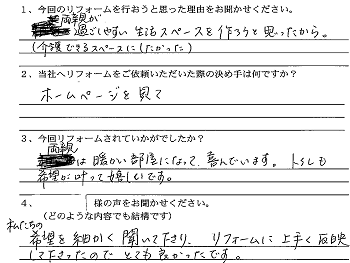 1、今回のリフォームを行おうと思った理由をお聞かせください。
両親が
過ごしやすい生活スペースを作ろうと思ったから。
(介護できるスペースにしたかった)
2、当社へリフォームをご依頼いただいた際の決め手は何ですか?
ホームページを見て
3、今回リフォームされていかがでしたか?
両親
は暖かい部屋になって、喜んでいます。トイレも
希望が叶って嬉しいです。
4、 様の声をお聞かせください。
(どのような内容でも結構です)
私たちの
希望を細かく聞いて下さり、リフォームに上手く反映
して下さったので とても良かったです。